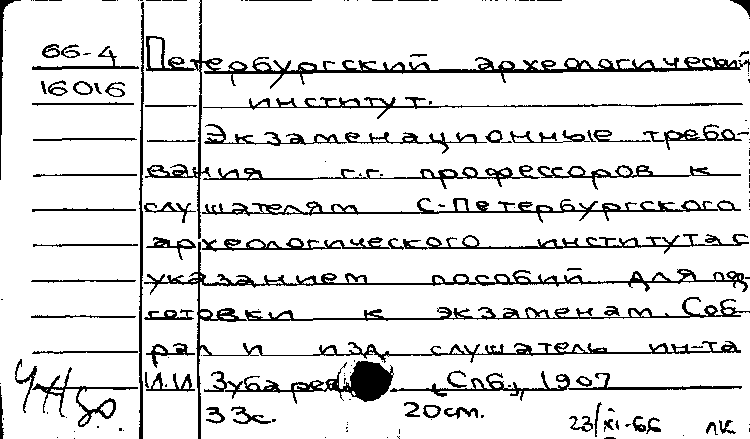 66-4
16016
Петербургский археологический
институт.
Экзаменационные требо-
вания г.г. профессоров к
слушателям С-Петербургского
археологического института с
указанием пособий для под-
готовки к экзаменам. Соб-
рал и изд. слушатель ин-та
И.И Зубарев. [Спб], 1907
33с. 20см.
23/XI-66 лк